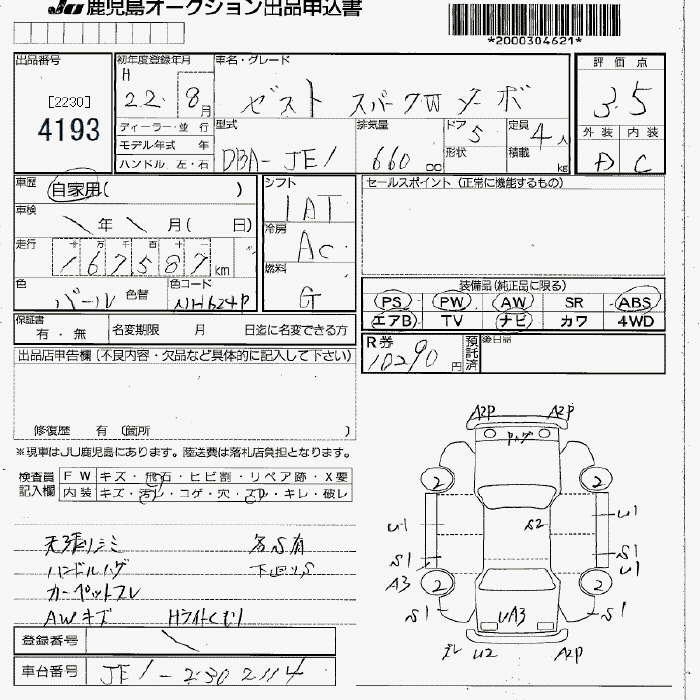 JU 鹿児島オークション出品申込書
*2000304621*
出品番号
[2230]
4193
初年度登録年月
H 22. 8月
車名・グレード
ゼスト スパークW ターボ
評価点
3.5
外装 内装
D C
ディーラー・並行
モデル年式 年
ハンドル 左・右
型式
DBA-JE1
排気量
660 cc
ドア 5
形状
定員 4人
積載 kg
車歴 自家用( )
車検 \ 年 \ 月( 日)
走行
十 万 千 百 十 一
167587 km
色 パール 色替
色コード NH624P
シフト
IAT
冷房
AC
燃料
G
セールスポイント (正常に機能するもの)
装備品(純正品に限る)
PS PW AW SR ABS
エアB TV ナビ カワ 4WD
保証書
有・無
名変期限 月 日迄に名変できる方
R券
10290円
預託済
後日品
出品店申告欄(不良内容・欠品など具体的に記入して下さい)
修復歴 有(箇所 )
※現車はJU鹿児島にあります。陸送費は落札店負担となります。
検査員記入欄
FW キズ・飛石・ヒビ割・リペア跡・X要
内装 キズ・汚レ・コゲ・穴・スレ・キレ・破レ
天張りシミ 各S有
ハンドルハゲ 下回りS
カーペットスレ
AWキズ Hライトくもり
登録番号 \
車台番号 JE1-2302114
A2P A2P
2 2
U1 S2 U1
S1 S1
A3 U1
2 2
S1 UA3 S1
U2 A2P